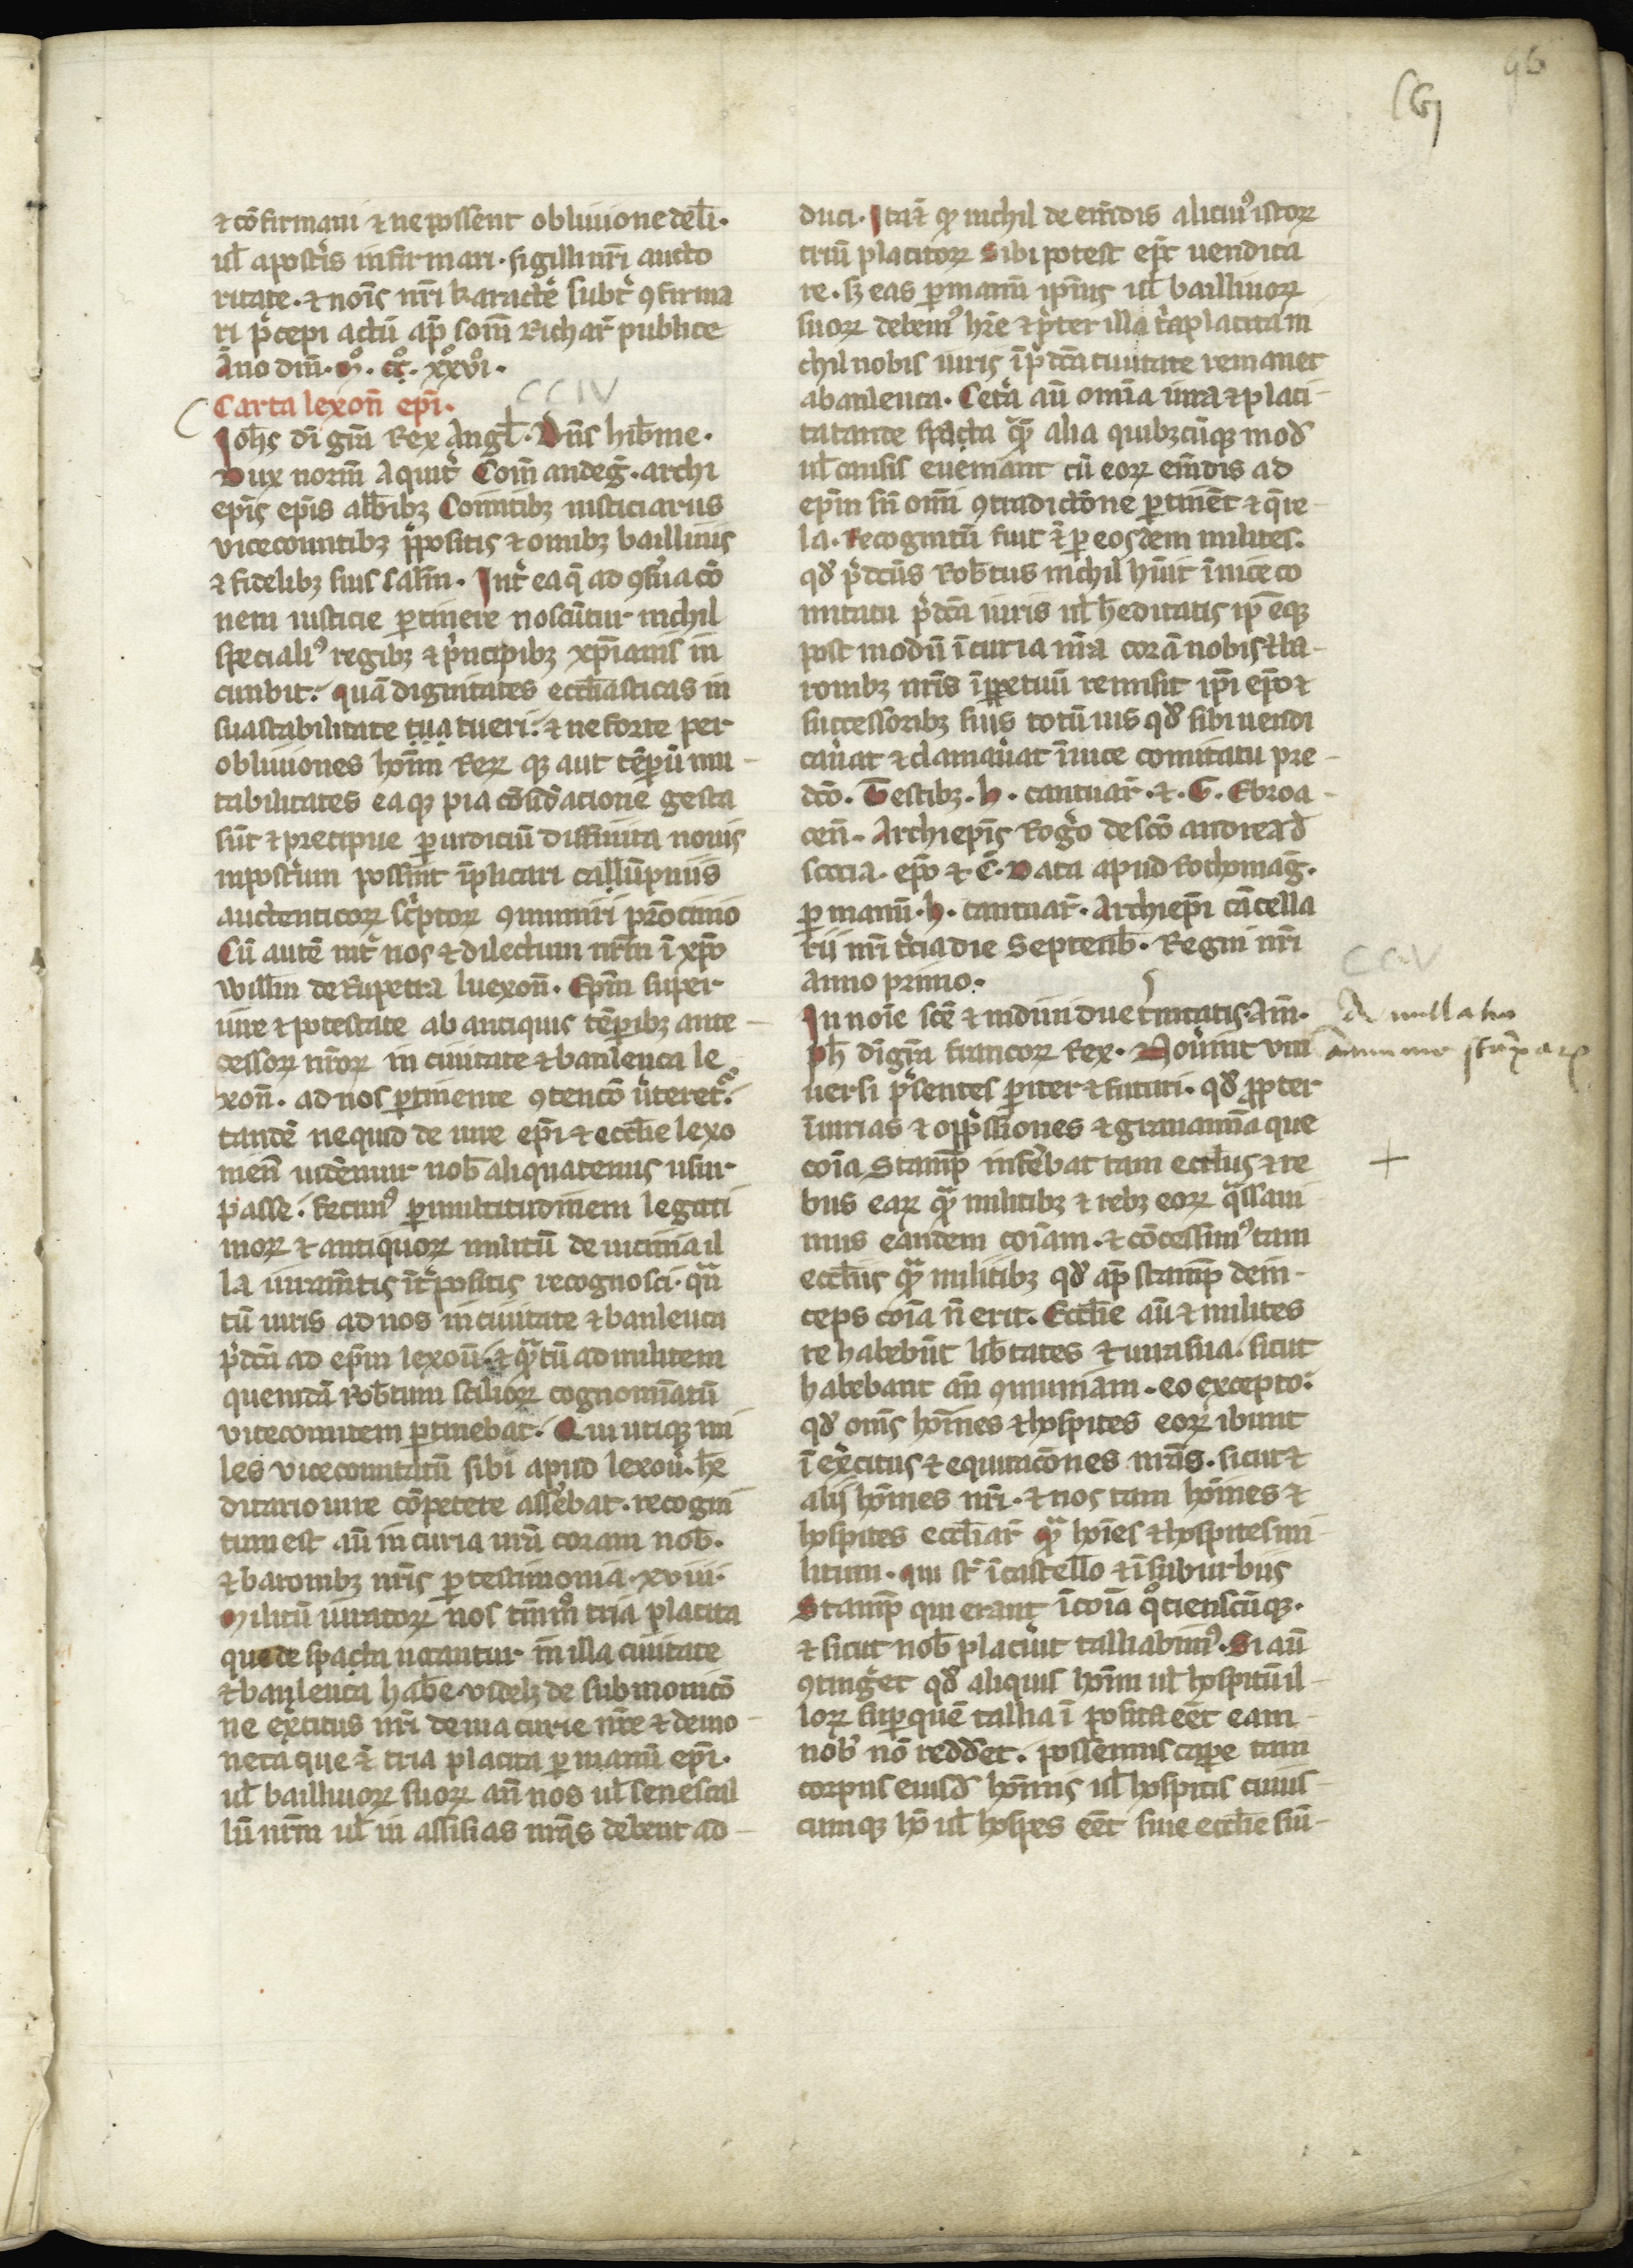 96
⁊ cōfirmaui ⁊ ne possent obliuione deƚi·
uƚ a postr̄is infirmari· sigilli nr̄i aucto
ritate· ⁊ noīs nr̄i karactē subt̾ ꝯfirma
ri p̾cepi actū ap̄ som̄ Richar̄ publice
Āno dm̄· mͦ· ccͦ· xxͦviͦ·
CCIV
Carta lexon̄ epī·
Joħs dī gr̄a Rex Angƚ· Dn̄s hiƀnie·
Dux norm̄ Aquit̾ Com̄ andeg̾· archi
epīs epīs abƀibꝫ Comitibꝫ iusticiariis
vicecomitibꝫ p̄positis ⁊ omībꝫ balliuis
⁊ fidelibꝫ suis saƚm̄· Int̾ ea q̄ ad ꝯẜuacō
nem iusticie ꝑtinere noscūtur nichil
specialiꝰ regibꝫ ⁊ p̾ncipibꝫ xp̄ianis in
cunbit· quā dignitates eccƚiasticas in
sua stabilitate tua tueri· ⁊ ne forte per
obliuiones hoīm Reꝝ qꝫ aut tēpꝝ mu-
tabilitates ea qꝫ pia cōsid̾acione gesta
sūt ⁊ precipue ꝑ iudiciū diffinita nouis
inpostꝰum possint īplicari callūpniis
auctenticoꝝ sc̾ptoꝝ ꝯmuniri pr̄ocinio
Cū autē int̾ nos ⁊ dilectum nr̄m ī xp̄o
willm̄ de Rupetra luexon̄· Epm̄ super
iure ⁊ potestate ab antiquis tēporibꝫ ante-
cessoꝝ nr̄oꝝ in ciuitate ⁊ banleuca le
xon̄· ad nos ꝑtinente ꝯtencō ꝟteretꝰ·
tandē ne quid de iure epī ⁊ eccƚie lexo
uien̄ uidēmur noƀ aliquatenus usur
passe· fecimꝰ ꝑ multitudinem legiti
moꝝ ⁊ antiquoꝝ militū de uicinia il
la iuram̄tis īt̾positis recognosci· quā
tū iuris ad nos in ciuitate ⁊ banleuca
p̾dcā ad epm̄ lexou̾· ⁊ qᵃtū ad militem
quemdā Robtum scilioꝝ cognomīatū
vicecomitem ꝑtinebat· Qui utiqꝫ mi
les vicecomitatū sibi apud lexou̾· he
ditario iure cōpetere assēbat· recogni
tum est aū in curia nr̄a coram noƀ·
⁊ baronibꝫ nr̄is ꝑ testimonia· xviii·
Militū iuratoꝝ nos tm̄mͦ tria placita
que de spacta uocantur in illa ciuitate
⁊ banleuca habē· videlꝫ de submonicō
ne ex̾citus nr̄i de uia curie nr̄e ⁊ de mo-
neta que ⁊̄ tria placita ꝑ manū epī·
uƚ balliuoꝝ suoꝝ an̄ nos uƚ senescal
lū nr̄m uƚ in assisias nr̄as debent ad-
duci· Ita ⁊̄ qꝫ nichil de em̄dis alicuiꝰ istoꝝ
triū placitoꝝ Sibi potest epc̄ uendica
re· sꝫ eas ꝑ manū ipīus uƚ bailliuoꝝ
suoꝝ debemꝰ hr̄e ⁊ p̾ter illa t̾a placita ni
chil nobis iuris ī p̾dcā ciuitate remanet
a banleuca· Cet̾a aū omīa iura ⁊ placi-
ta tante spacta qᵃ alia quibꝫcūqꝫ mod̾
uƚ causis eueniant cū eoꝝ em̄dis ad
epm̄ sn̄ omī ꝯtradictōne ꝑtinēt ⁊ q̄re-
la· Recognitū fuit ⁊̄ ꝑ eosdem milites·
qđ p̾dcūs Robtus nichil hūit ī uiceco
mitatu p̾dcā iuris uƚ heditatis ip̄e qꝫ
post modū ī curia nr̄a corā nobis ⁊ ba-
ronibꝫ nr̄is ī ppetuū remisit ipī epō ⁊
successoribꝫ suis totū ius qđ sibi uendi
cauat ⁊ clamauat ī uice comitatu pre-
dcō· Testibꝫ· h· cantuar̄· ⁊· G· Ebroa-
cen̄· Archiepīs Rogo de scō andrea đ
scocia· epō ⁊ c̄· Data apud Rothomag̾·
ꝑ manū· h· cantuar̄· Archiepī cācella
rii nr̄i t̾cia die Septenƀ· Regni nr̄i
anno primo·
CCV
In noīe scē ⁊ indiuidue trinitatis· Am̄·
Ph̄ dī gr̄a francoꝝ Rex· Nouint vni
uersi p̾sentes pariter ⁊ futuri· qđ ppter
iniurias ⁊ opp̾ssiones ⁊ grauamīa que
coīa Stamp̄ inferebat tam eccƚiis ⁊ re
bus eaꝝ qᵃ militibꝫ ⁊ rebꝫ eoꝝ qᵃssaui
mus eandem coīam· ⁊ cōcessimꝰ tam
eccƚiis qᵃ militibꝫ qđ ap̄ stamp̄ dein-
ceps coīa n̄ erit· Eccƚie aū ⁊ milites
re habebūt liƀtates ⁊ iura sua· sicut
habebant an̄ ꝯmuniam· eo excepto·
qđ om̄s hōines ⁊ hospites eoꝝ ibunt
ī ex̾citus ⁊ equitacōnes nr̄as· sicut ⁊
alij hōines nr̄i· ⁊ nos tam hōines ⁊
hospites eccƚiar̄ qᵃ hoīes ⁊ hospites mi-
litum· qui st̄ ī castello ⁊ ī suburbus
Stamp̄ qui erant ī coīa qͦcienscūqꝫ·
⁊ sicut noƀ placūit talliabimꝰ· Si aū
ꝯting̾et qđ aliquis hoīm uƚ hospitū il-
loꝝ suꝑ quē tallia ī posita eēt eam
noƀ nō reddēt· possemus cape tam
corpus eiusđ hōinis uƚ hospitis cuius-
cumqꝫ hō uƚ hospes eēt siue eccƚie siū-